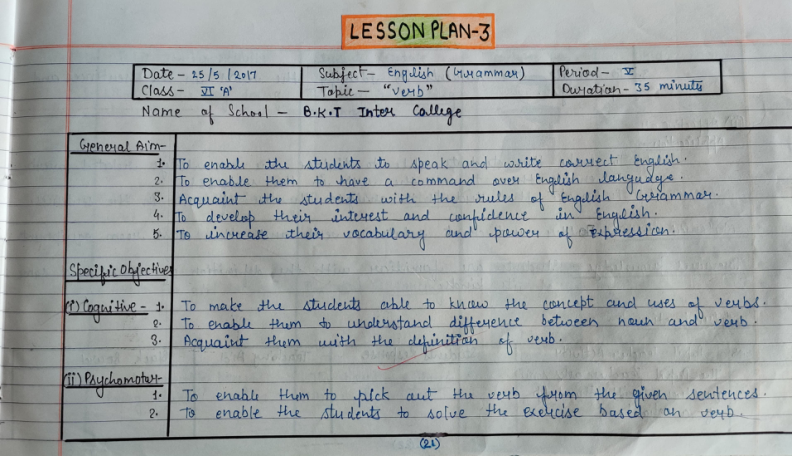 LESSON PLAN-3
Date - 25/5/2017 Subject - English (Grammar) Period - V
Class - VI 'A' Topic - "Verb" Duration - 35 minutes
Name of School - B.K.T Inter College
General Aim-
1. To enable the students to speak and write correct English.
2. To enable them to have a command over English language.
3. Acquaint the students with the rules of English Grammar.
4. To develop their interest and confidence in English.
5. To increase their vocabulary and power of Expression.
Specific Objectives
(i) Cognitive - 1. To make the students able to know the concept and uses of verbs.
2. To enable them to understand difference between noun and verb.
3. Acquaint them with the definition of verb.
(ii) Psychomotor-
1. To enable them to pick out the verb from the given sentences.
2. To enable the students to solve the exercise based on verb.
(21)